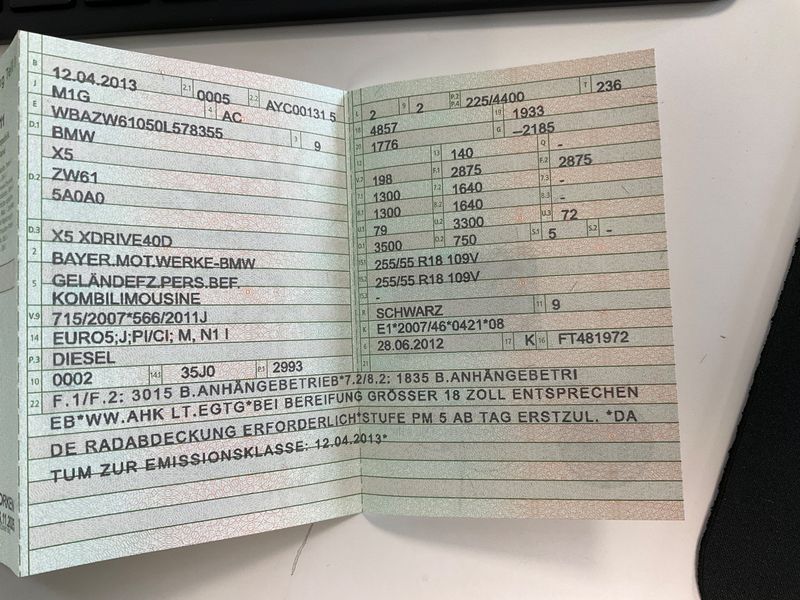 B 12.04.2013 2.1 0005 2.2 AYC00131.5
J M1G 4 AC
E WBAZW61050L578355 3 9
D.1 BMW
X5
D.2 ZW61
5A0A0
D.3 X5 XDRIVE40D
2 BAYER.MOT.WERKE-BMW
5 GELÄNDEFZ.PERS.BEF.
KOMBILIMOUSINE
V.9 715/2007*566/2011J
14 EURO5;J;PI/CI; M, N1 I
P.3 DIESEL
10 0002 14.1 35J0 P.1 2993
L 2 9 2 P.2 P.4 225/4400 T 236
18 4857 19 1933
20 1776 G –2185
12 - 13 140 Q -
V.7 198 F.1 2875 F.2 2875
7.1 1300 7.2 1640 7.3 -
8.1 1300 8.2 1640 8.3 -
U.1 79 U.2 3300 U.3 72
O.1 3500 O.2 750 S.1 5 S.2 -
15.1 255/55 R18 109V
15.2 255/55 R18 109V
15.3 -
R SCHWARZ 11 9
K E1*2007/46*0421*08
6 28.06.2012 17 K 16 FT481972
21
22 F.1/F.2: 3015 B.ANHÄNGEBETRIEB*7.2/8.2: 1835 B.ANHÄNGEBETRI
EB*WW.AHK LT.EGTG*BEI BEREIFUNG GRÖSSER 18 ZOLL ENTSPRECHEN
DE RADABDECKUNG ERFORDERLICH*STUFE PM 5 AB TAG ERSTZUL. *DA
TUM ZUR EMISSIONSKLASSE: 12.04.2013*